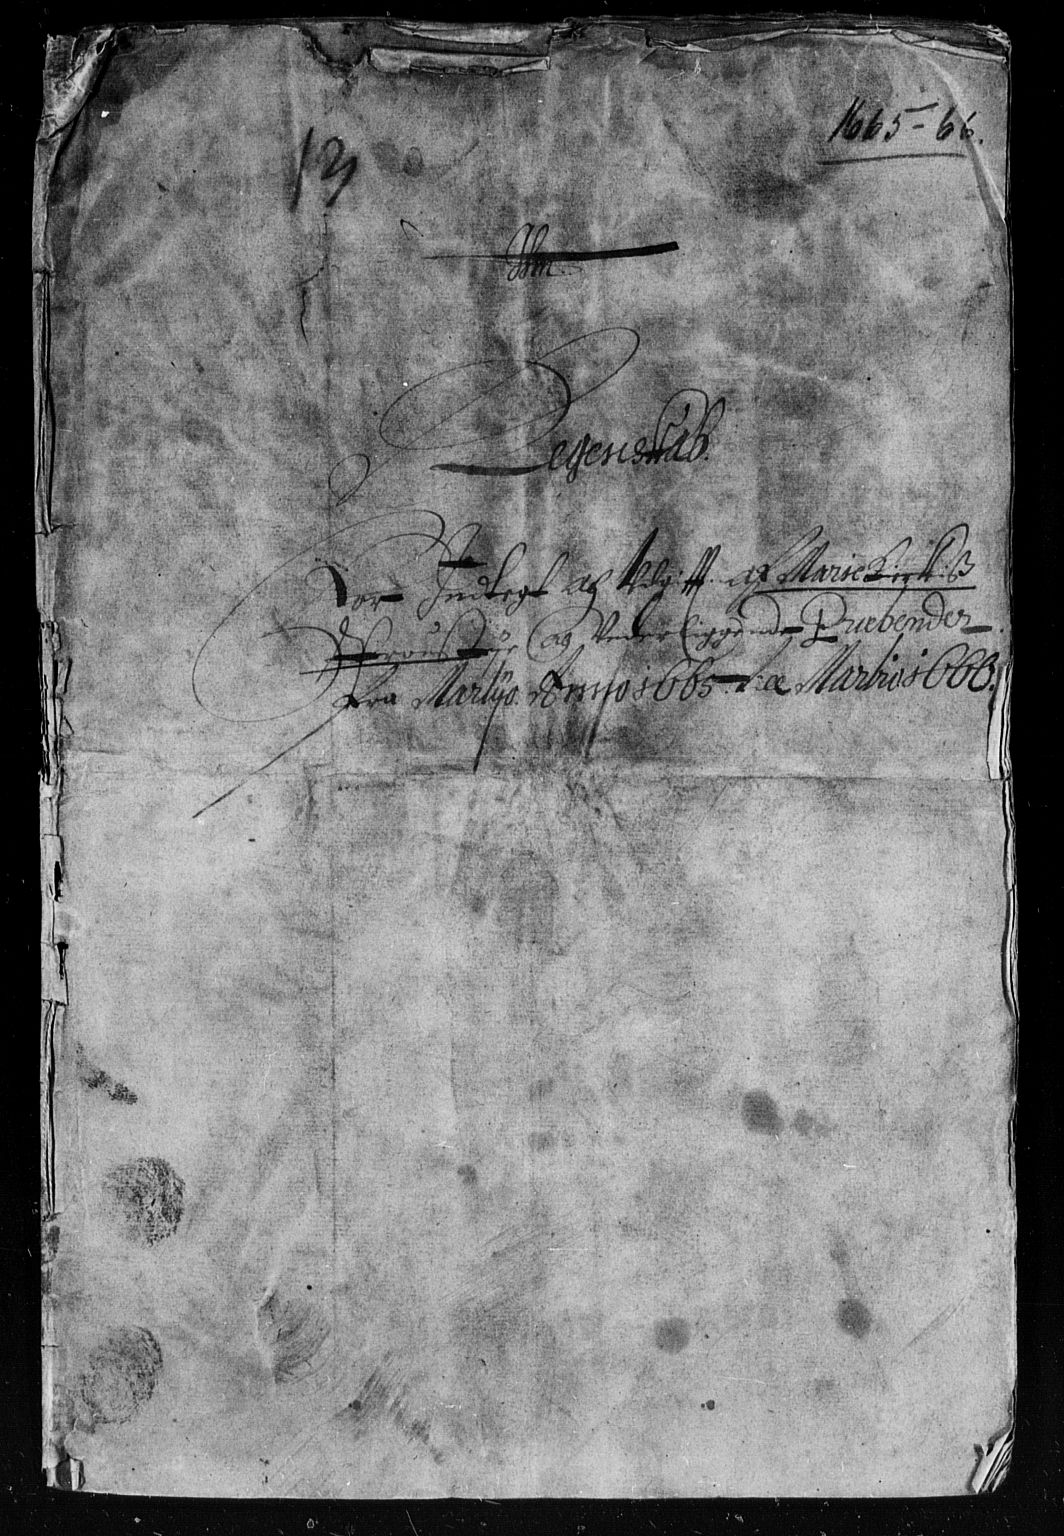 1665-66.
13
Regenskab.
For Indtegt og Udgifft. af MarieKirkiß
Proustie og Vederliggende Præbender
fra Martÿo. Anno 1665. till Martio 1666.